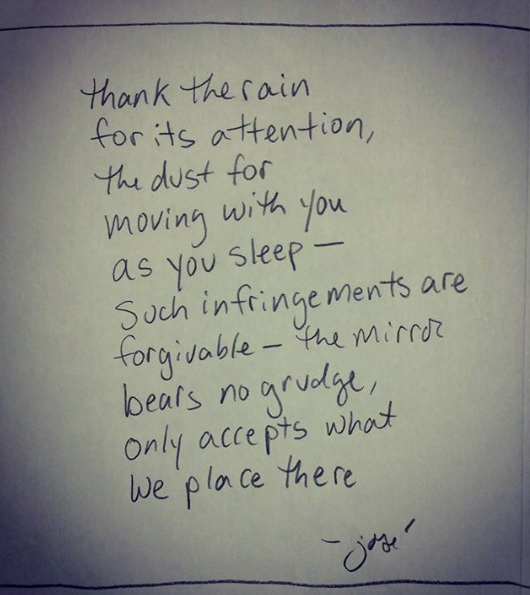 thank the rain
for its attention,
the dust for
moving with you
as you sleep —
Such infringements are
forgivable — the mirror
bears no grudge,
only accepts what
we place there
- josé